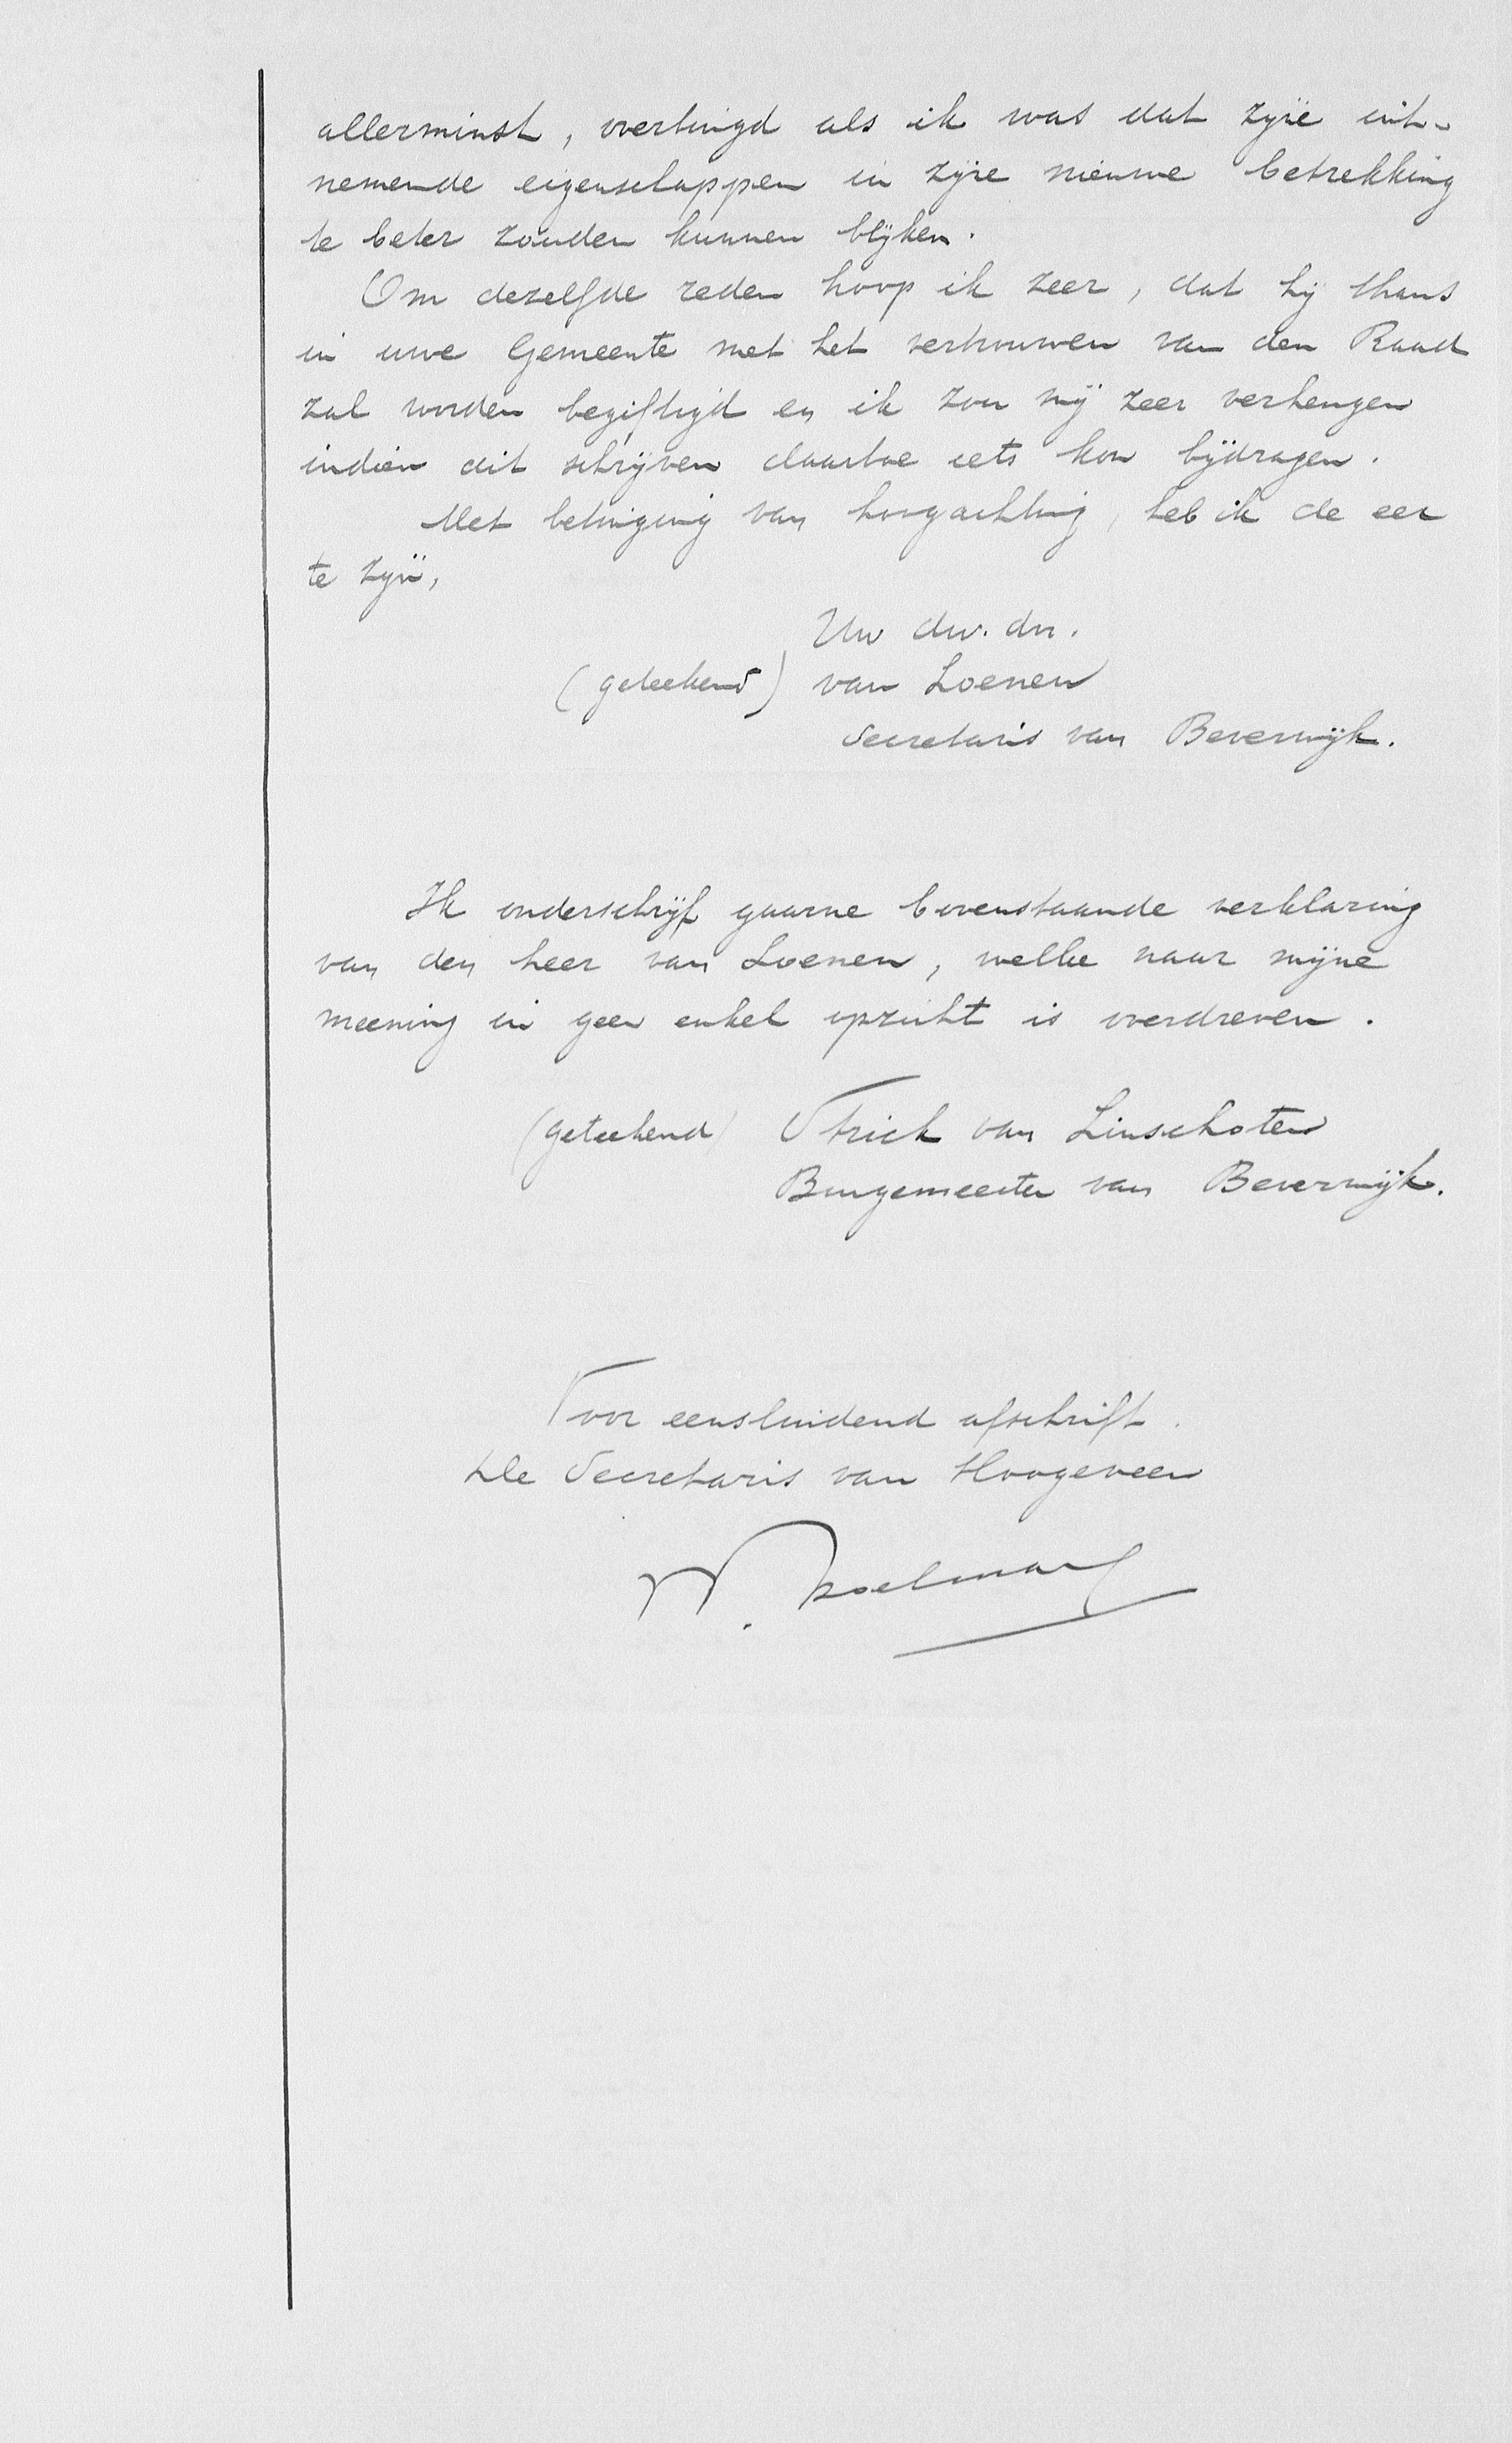 allerminst, overtuigd als ik was dat zijne uit-
nemende eigenschappen in zijne nieuwe betrekking
te beter zouden kunnen blijken.
Om dezelfde reden hoop ik zeer, dat hij thans
in uwe Gemeente met het vertrouwen van den Raad
zal worden begiftigd en ik zou mij zeer verheugen
indien dit schrijven daartoe iets kon bijdragen.
Met betuiging van hoogachting, heb ik de eer
te zijn,
Uw dw. dn.
(geteekend) van Loenen
Secretaris van Beverwijk.
Ik onderschrijf gaarne bovenstaande verklaring
van den heer van Loenen, welke naar mijne
meening in geen enkel opzicht is overdreven.
(geteekend) Strick van Linschoten
Burgemeester van Beverwijk.
Voor eensluidend afschrift.
De Secretaris van Hoogeveen